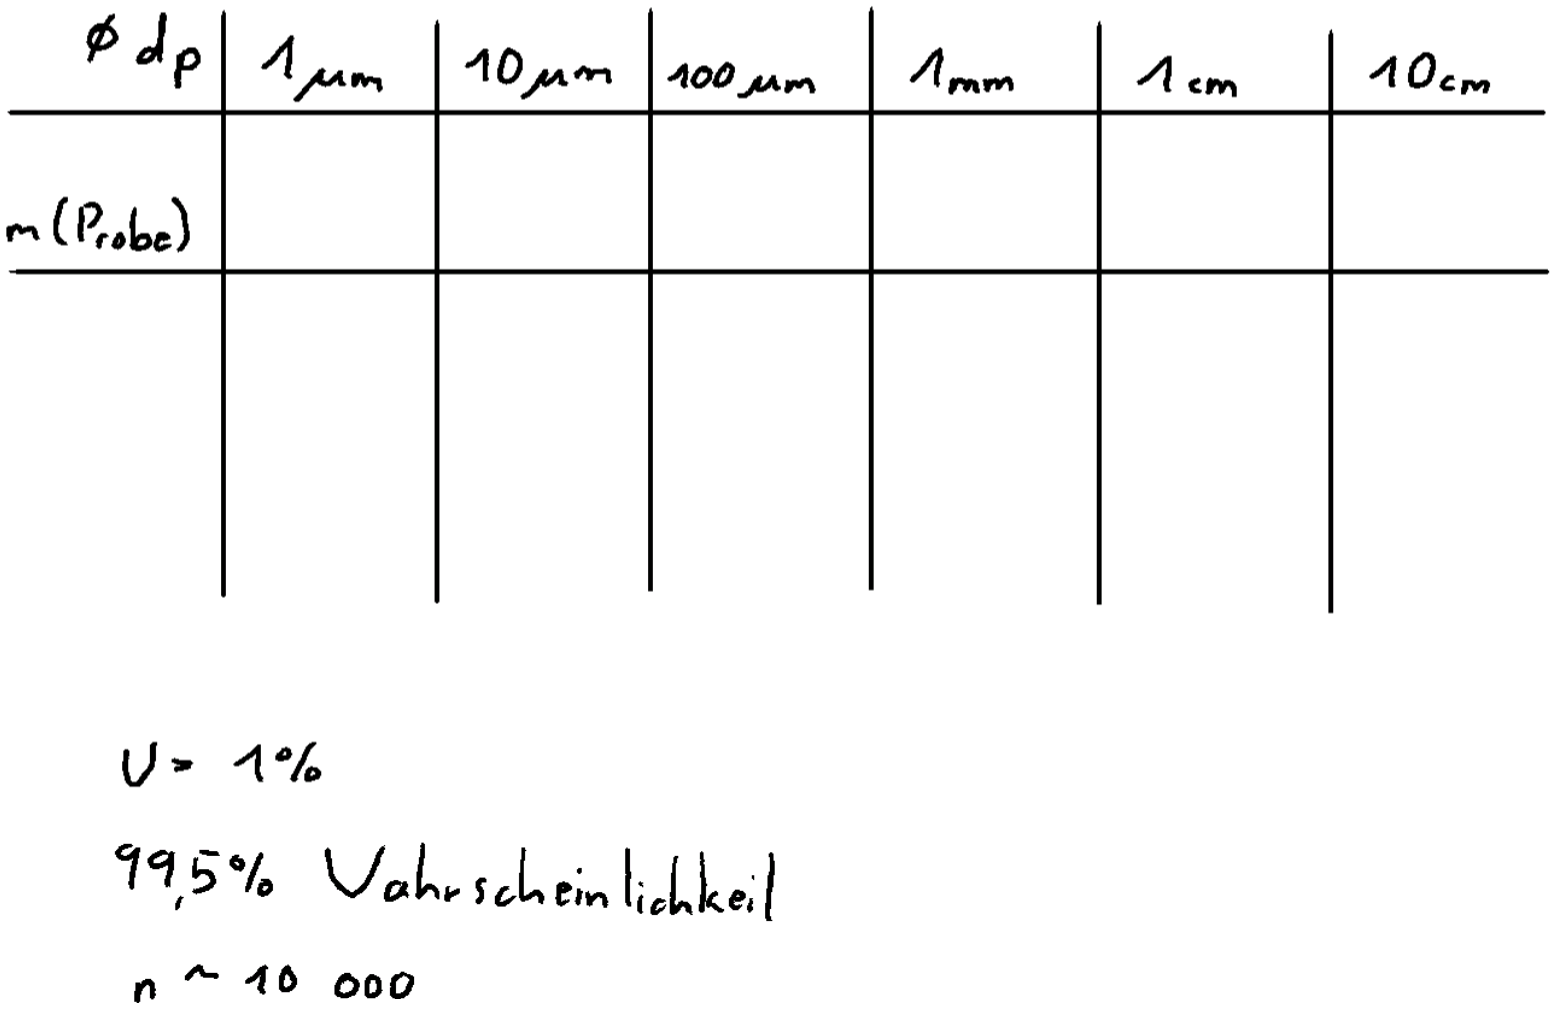 ø dp 1 µm 10 µm 100 µm 1 mm 1 cm 10 cm
m (Probe)
U = 1%
99,5% Wahrscheinlichkeit
n ~ 10 000